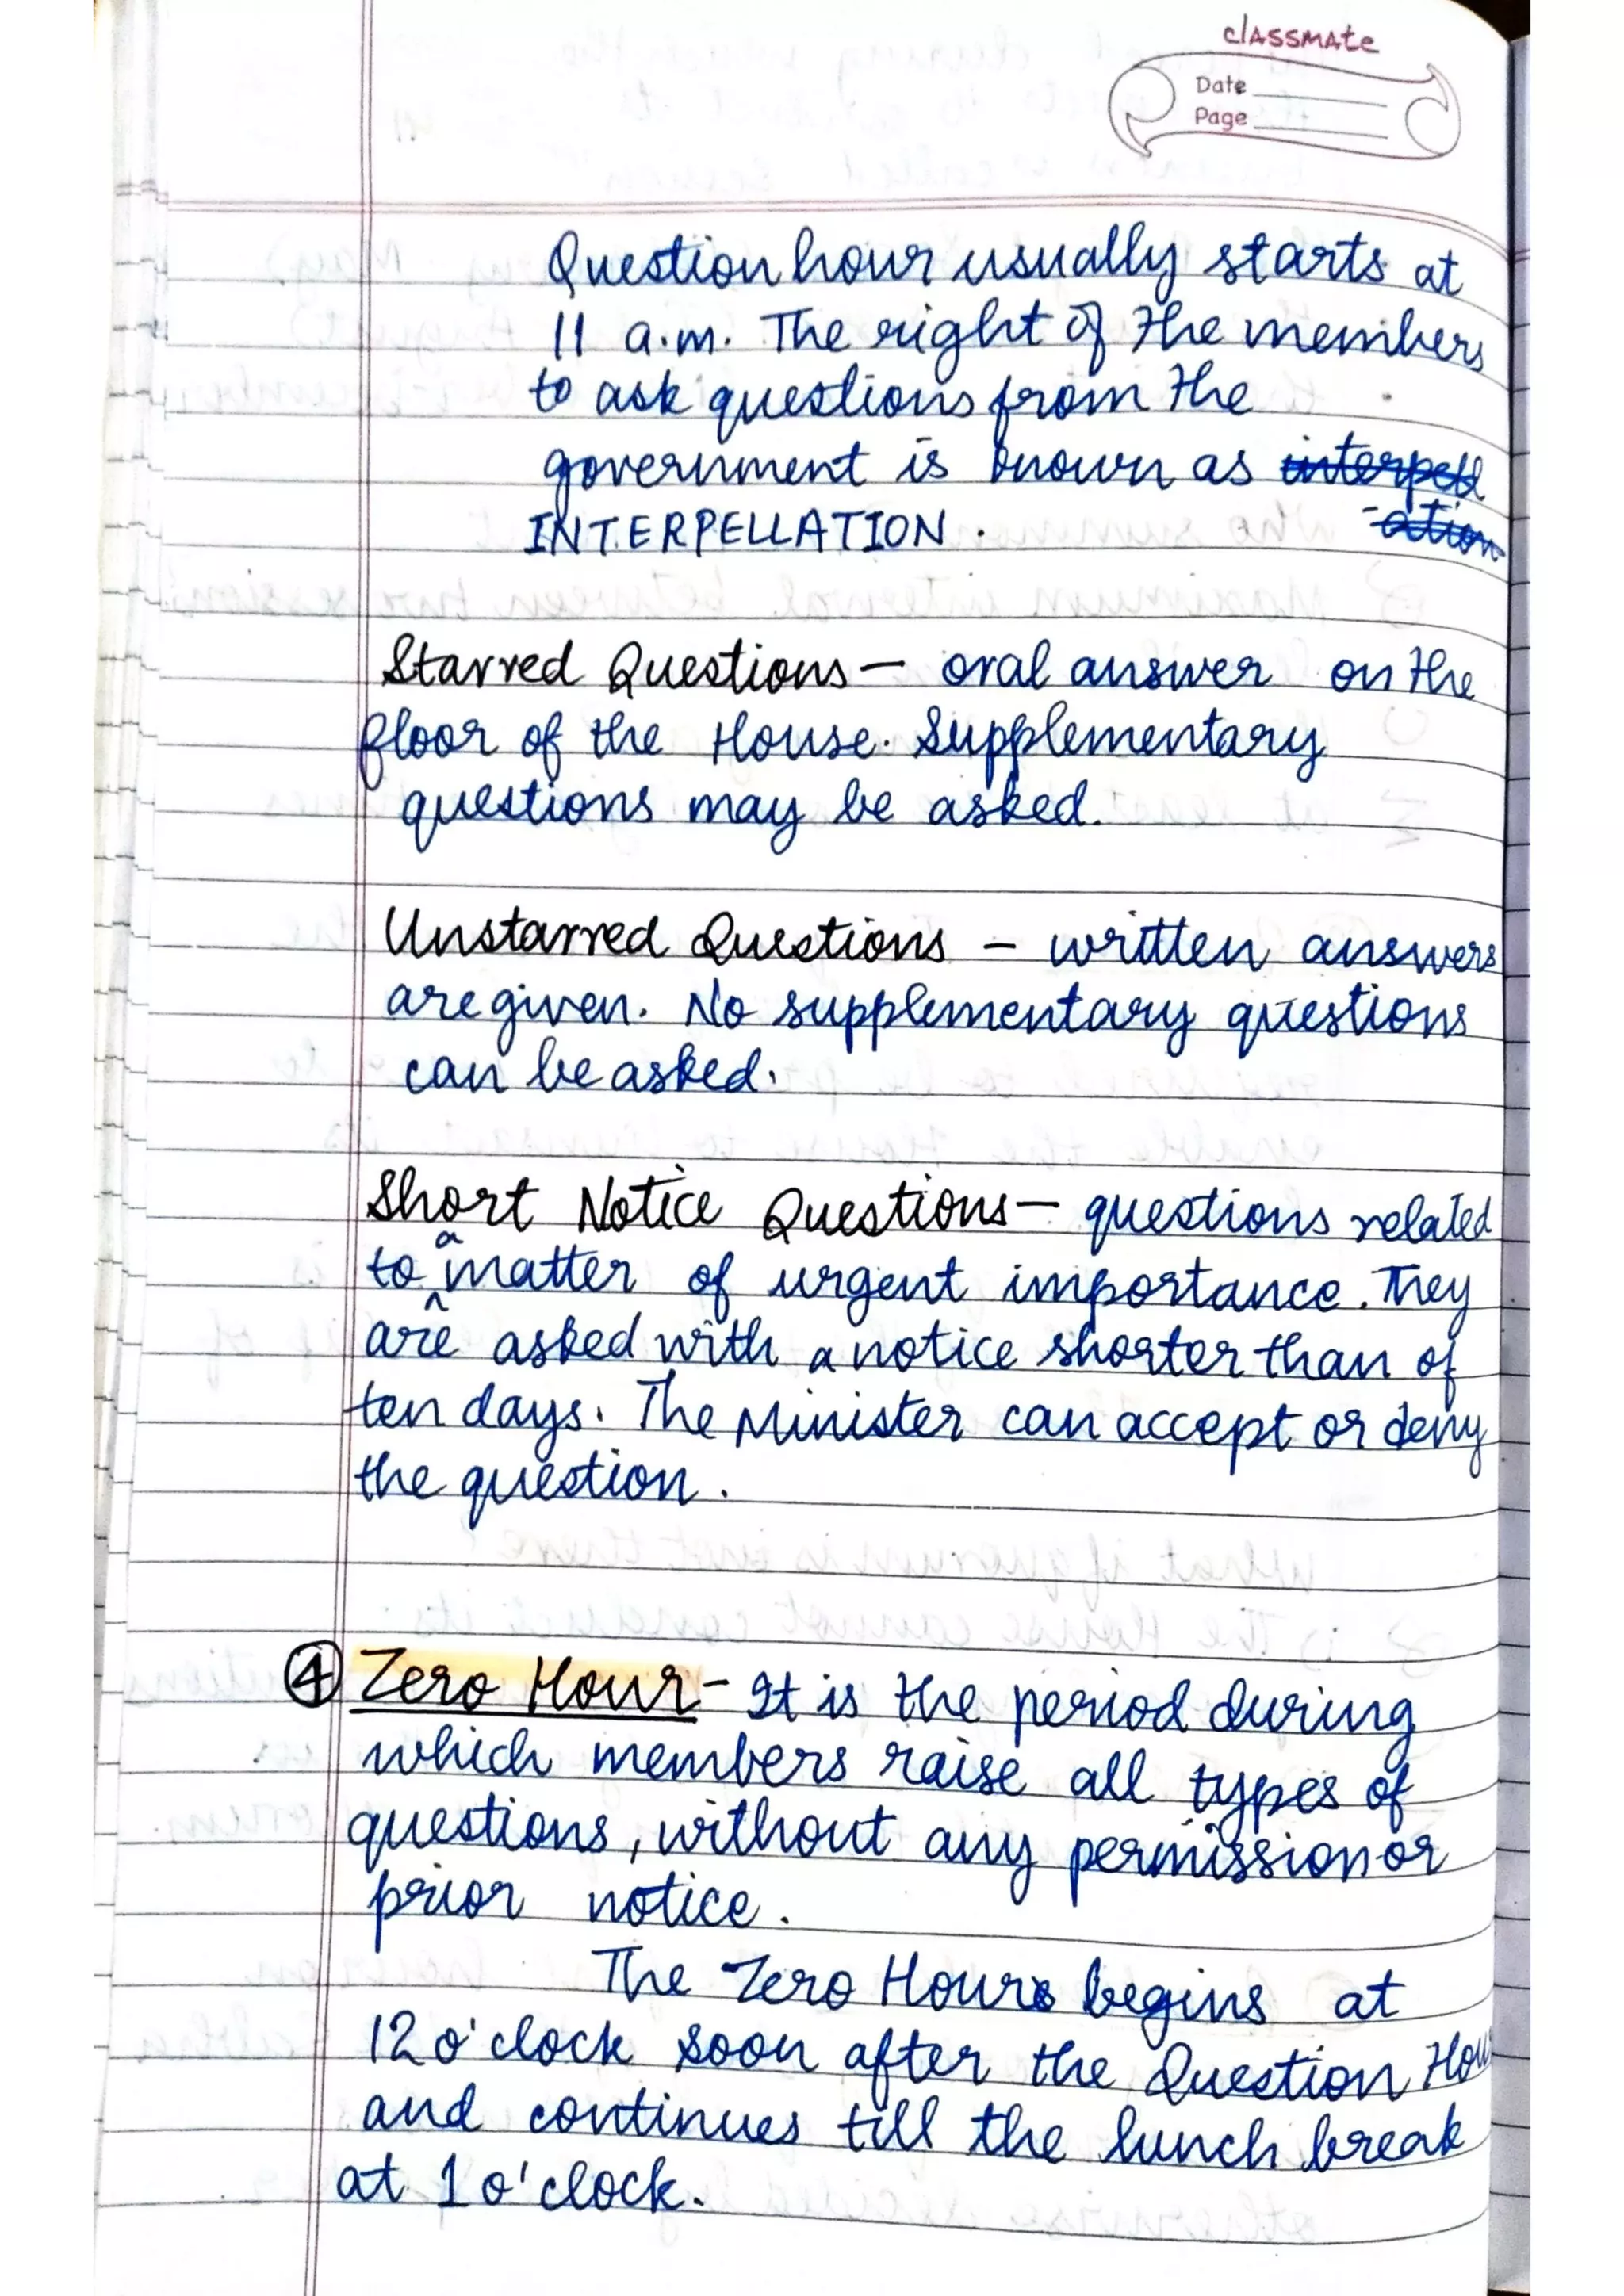 classmate
Date
Page
Question hour usually starts at
11 a.m. The right of the members
to ask questions from the
government is known as interpell
-ation
INTERPELLATION.
Starred Questions — oral answer on the
floor of the House. Supplementary
questions may be asked.
Unstarred Questions – written answers
are given. No supplementary questions
can be asked.
Short Notice Questions — questions related
to a matter of urgent importance. They
are asked with a notice shorter than of
ten days. The Minister can accept or deny
the question.
④ Zero Hour - It is the period during
which members raise all types of
questions, without any permission or
prior notice.
The Zero Hour begins at
12 o'clock soon after the Question Hou
and continues till the lunch break
at 1 o'clock.